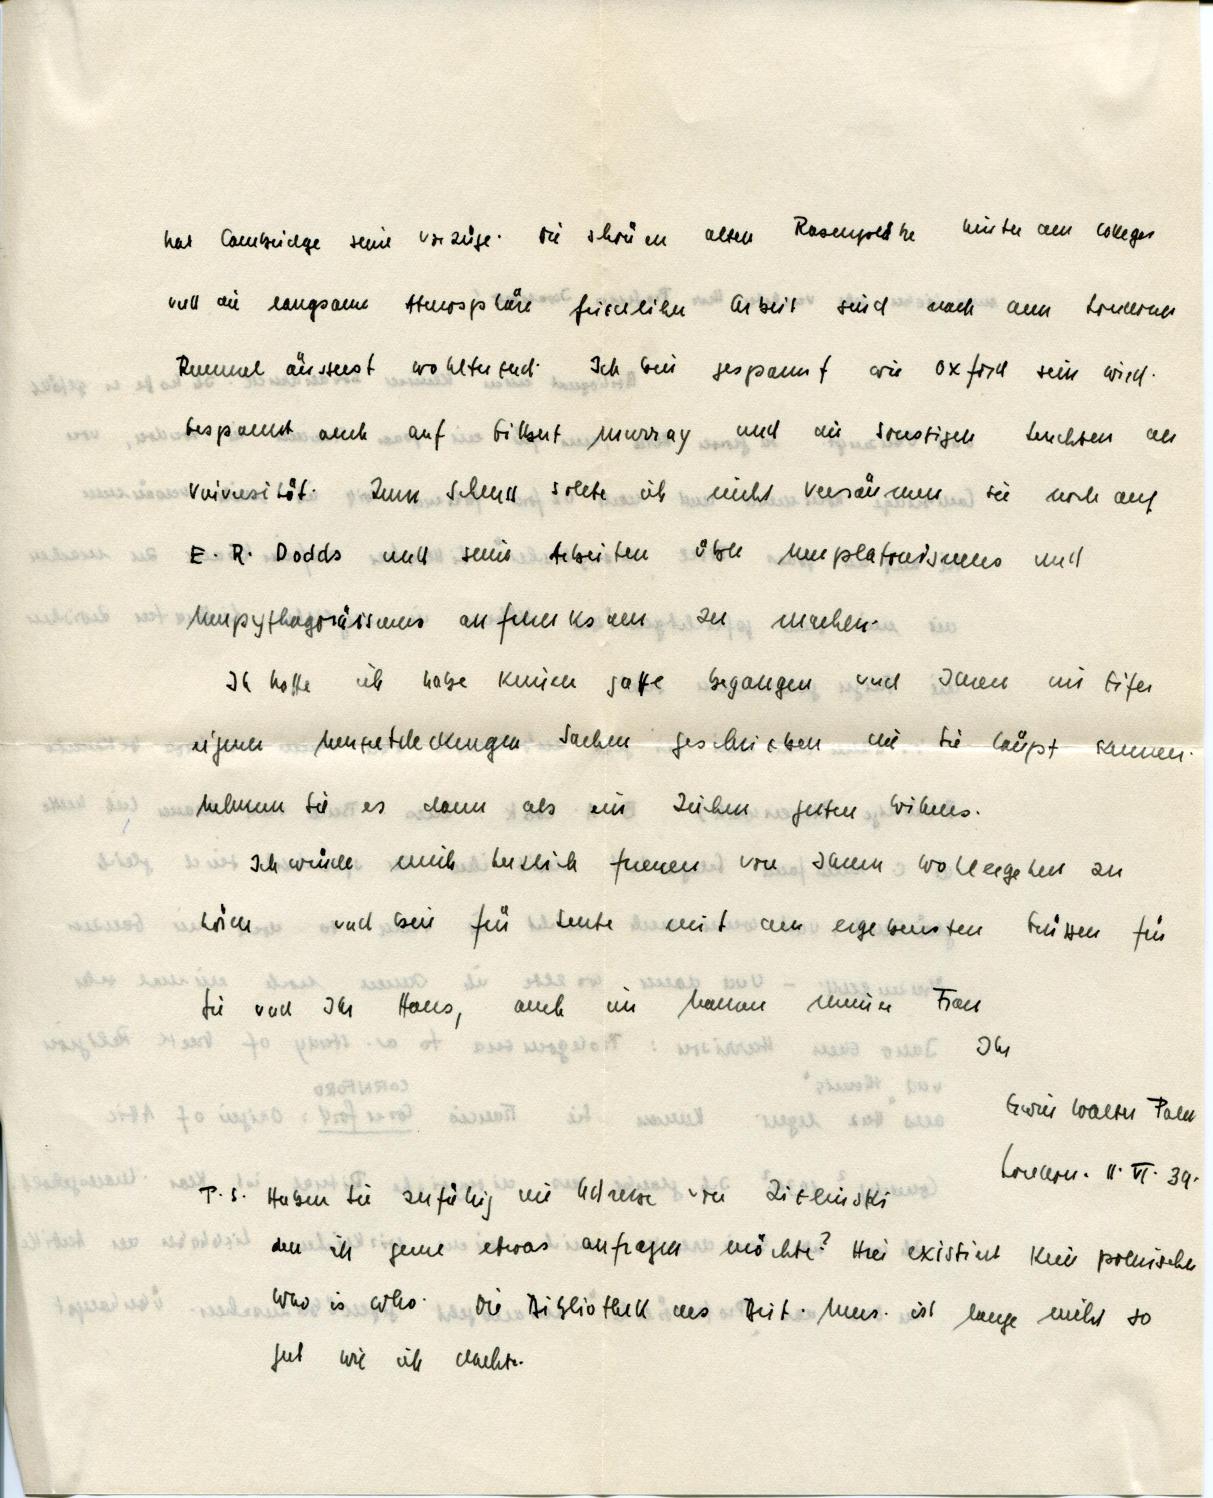 hat Cambridge seine Vorzüge. Die schönen alten Rasenplätze hinter den Colleges
und die langsame Atmosphäre friedlicher Arbeit sind nach dem Londoner
Rummel äusserst wohltuend. Ich bin gespannt wie Oxford sein wird.
Gespannt auch auf Gilbert Murray und die sonstigen Leuchten der
Universität. Zum Schluss sollte ich nicht versäumen Sie noch auf
E. R. Dodds und seine Arbeiten über Neuplatonismus und
Neupythagoräismus aufmerksam zu machen.
Ich hoffe ich habe keinen gaffe begangen und Ihnen im Eifer
eigener Neuentdeckungen Sachen geschrieben die Sie längst kannten.
Nehmen Sie es dann als ein Zeichen guten Willens.
Ich würde mich herzlich freuen von Ihrem Wohlergehen zu
hören und bin für heute mit den ergebensten Grüssen für
Sie und Ihr Haus, auch im Namen meiner Frau
Ihr
Erwin Walter Palm
London. 11. VI. 39.
P.S. Haben Sie zufällig die Adresse von Zielinski
den ich gerne etwas anfragen möchte? Hier existiert kein polnischer
Who is Who. Die Bibliothek des Brit. Mus. ist lange nicht so
gut wie ich dachte.